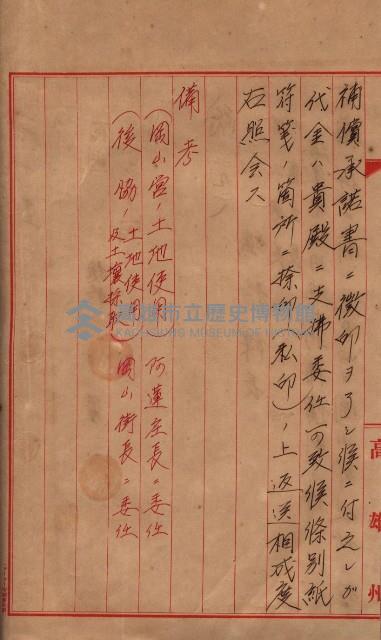 補償承諾書ニ徴印ヲ了シ候ニ付之レガ
代金ハ貴殿ニ支拂委任可致候條別紙
符箋ノ箇所ニ捺印(私印)ノ上返送相成度
右照会ス
備考
(岡山宮ノ土地使用 阿蓮庄長ニ委任
(後協ノ土地使用及土壤採取) 岡山街長ニ委任
高雄州
高雄市立歷史博物館
KAOHSIUNG MUSEUM OF HISTORY